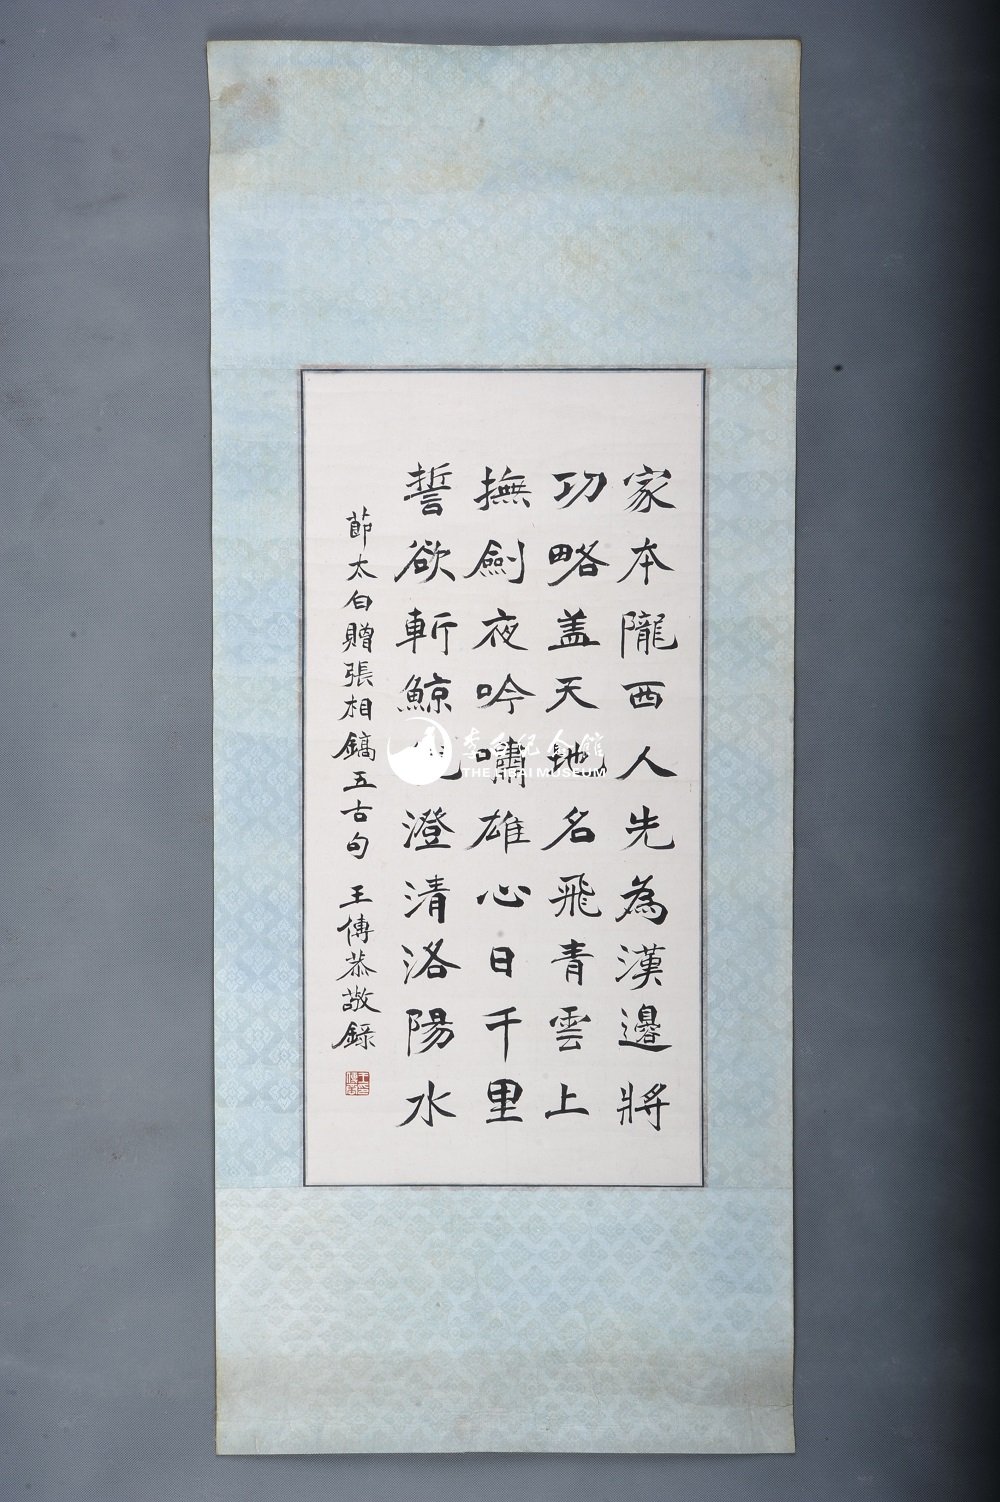 家本隴西人先為漢邊將
功略盖天地名飛青雲上
撫劍夜吟嘯雄心日千里
誓欲斬鯨鯢澄清洛陽水
節太白贈張相鎬五古句 王傳恭敬錄
李白纪念馆
THE LIBAI MUSEUM